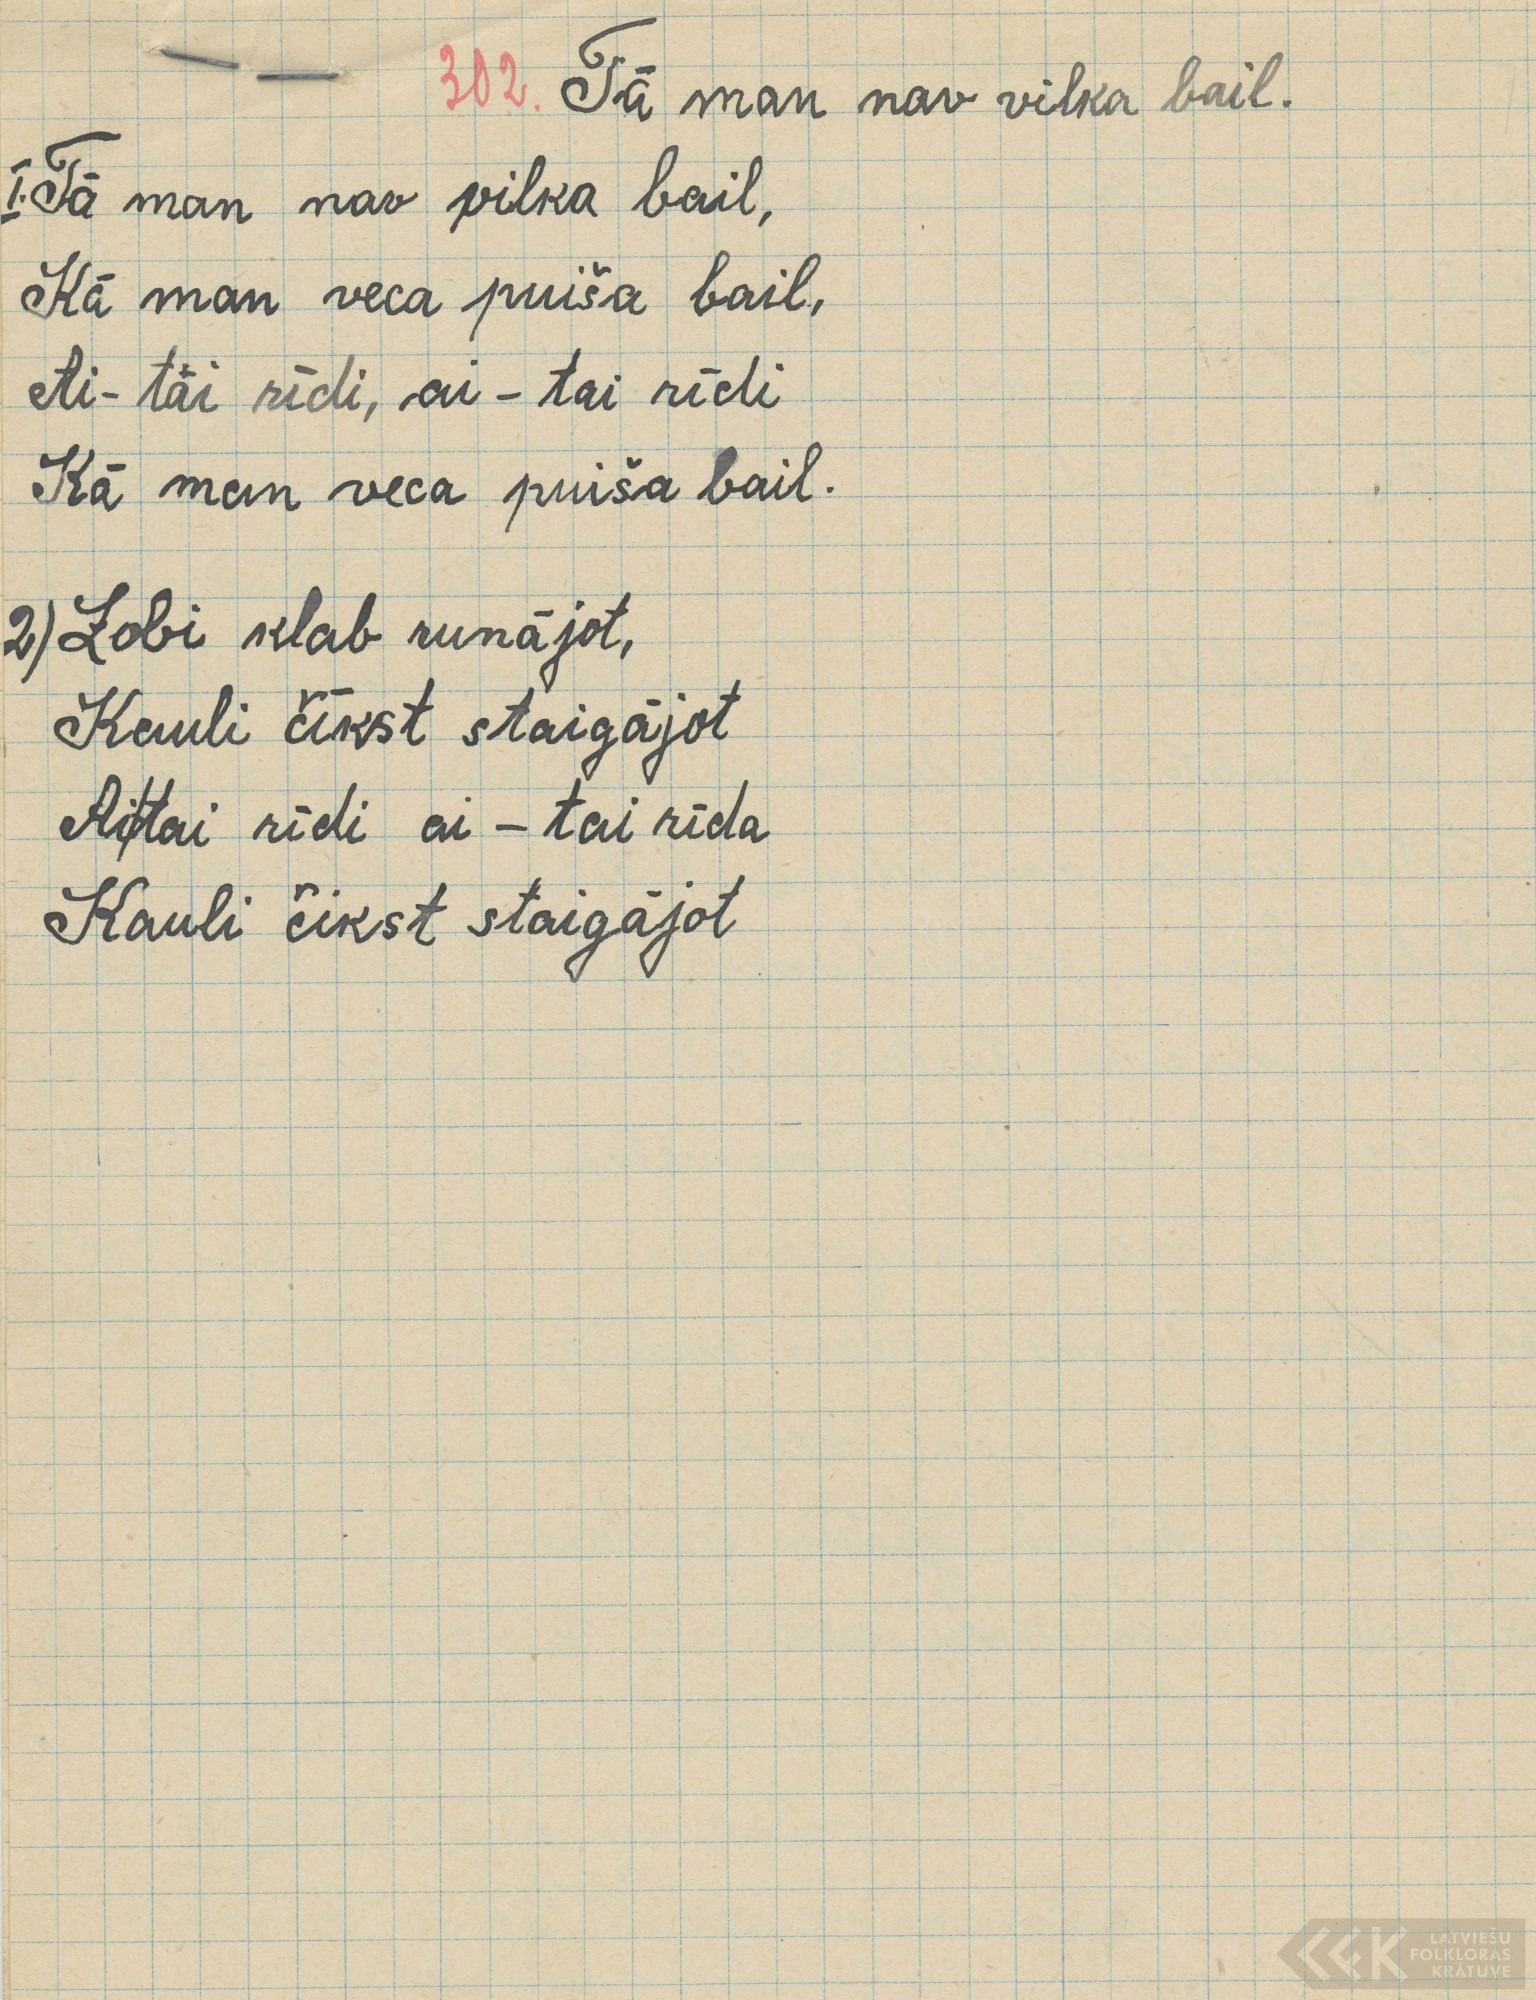 302. Tā man nav vilka bail.
I. Tā man nav vilka bail,
Kā man veca puiša bail,
Ai-tai rīdi, ai-tai rīdi
Kā man veca puiša bail.
2) Zobi klab runājot,
Kauli čīkst staigājot
Ai-tai rīdi ai-tai rīda
Kauli čikst staigājot
LATVIEŠU
FOLKLORAS
KRĀTUVE